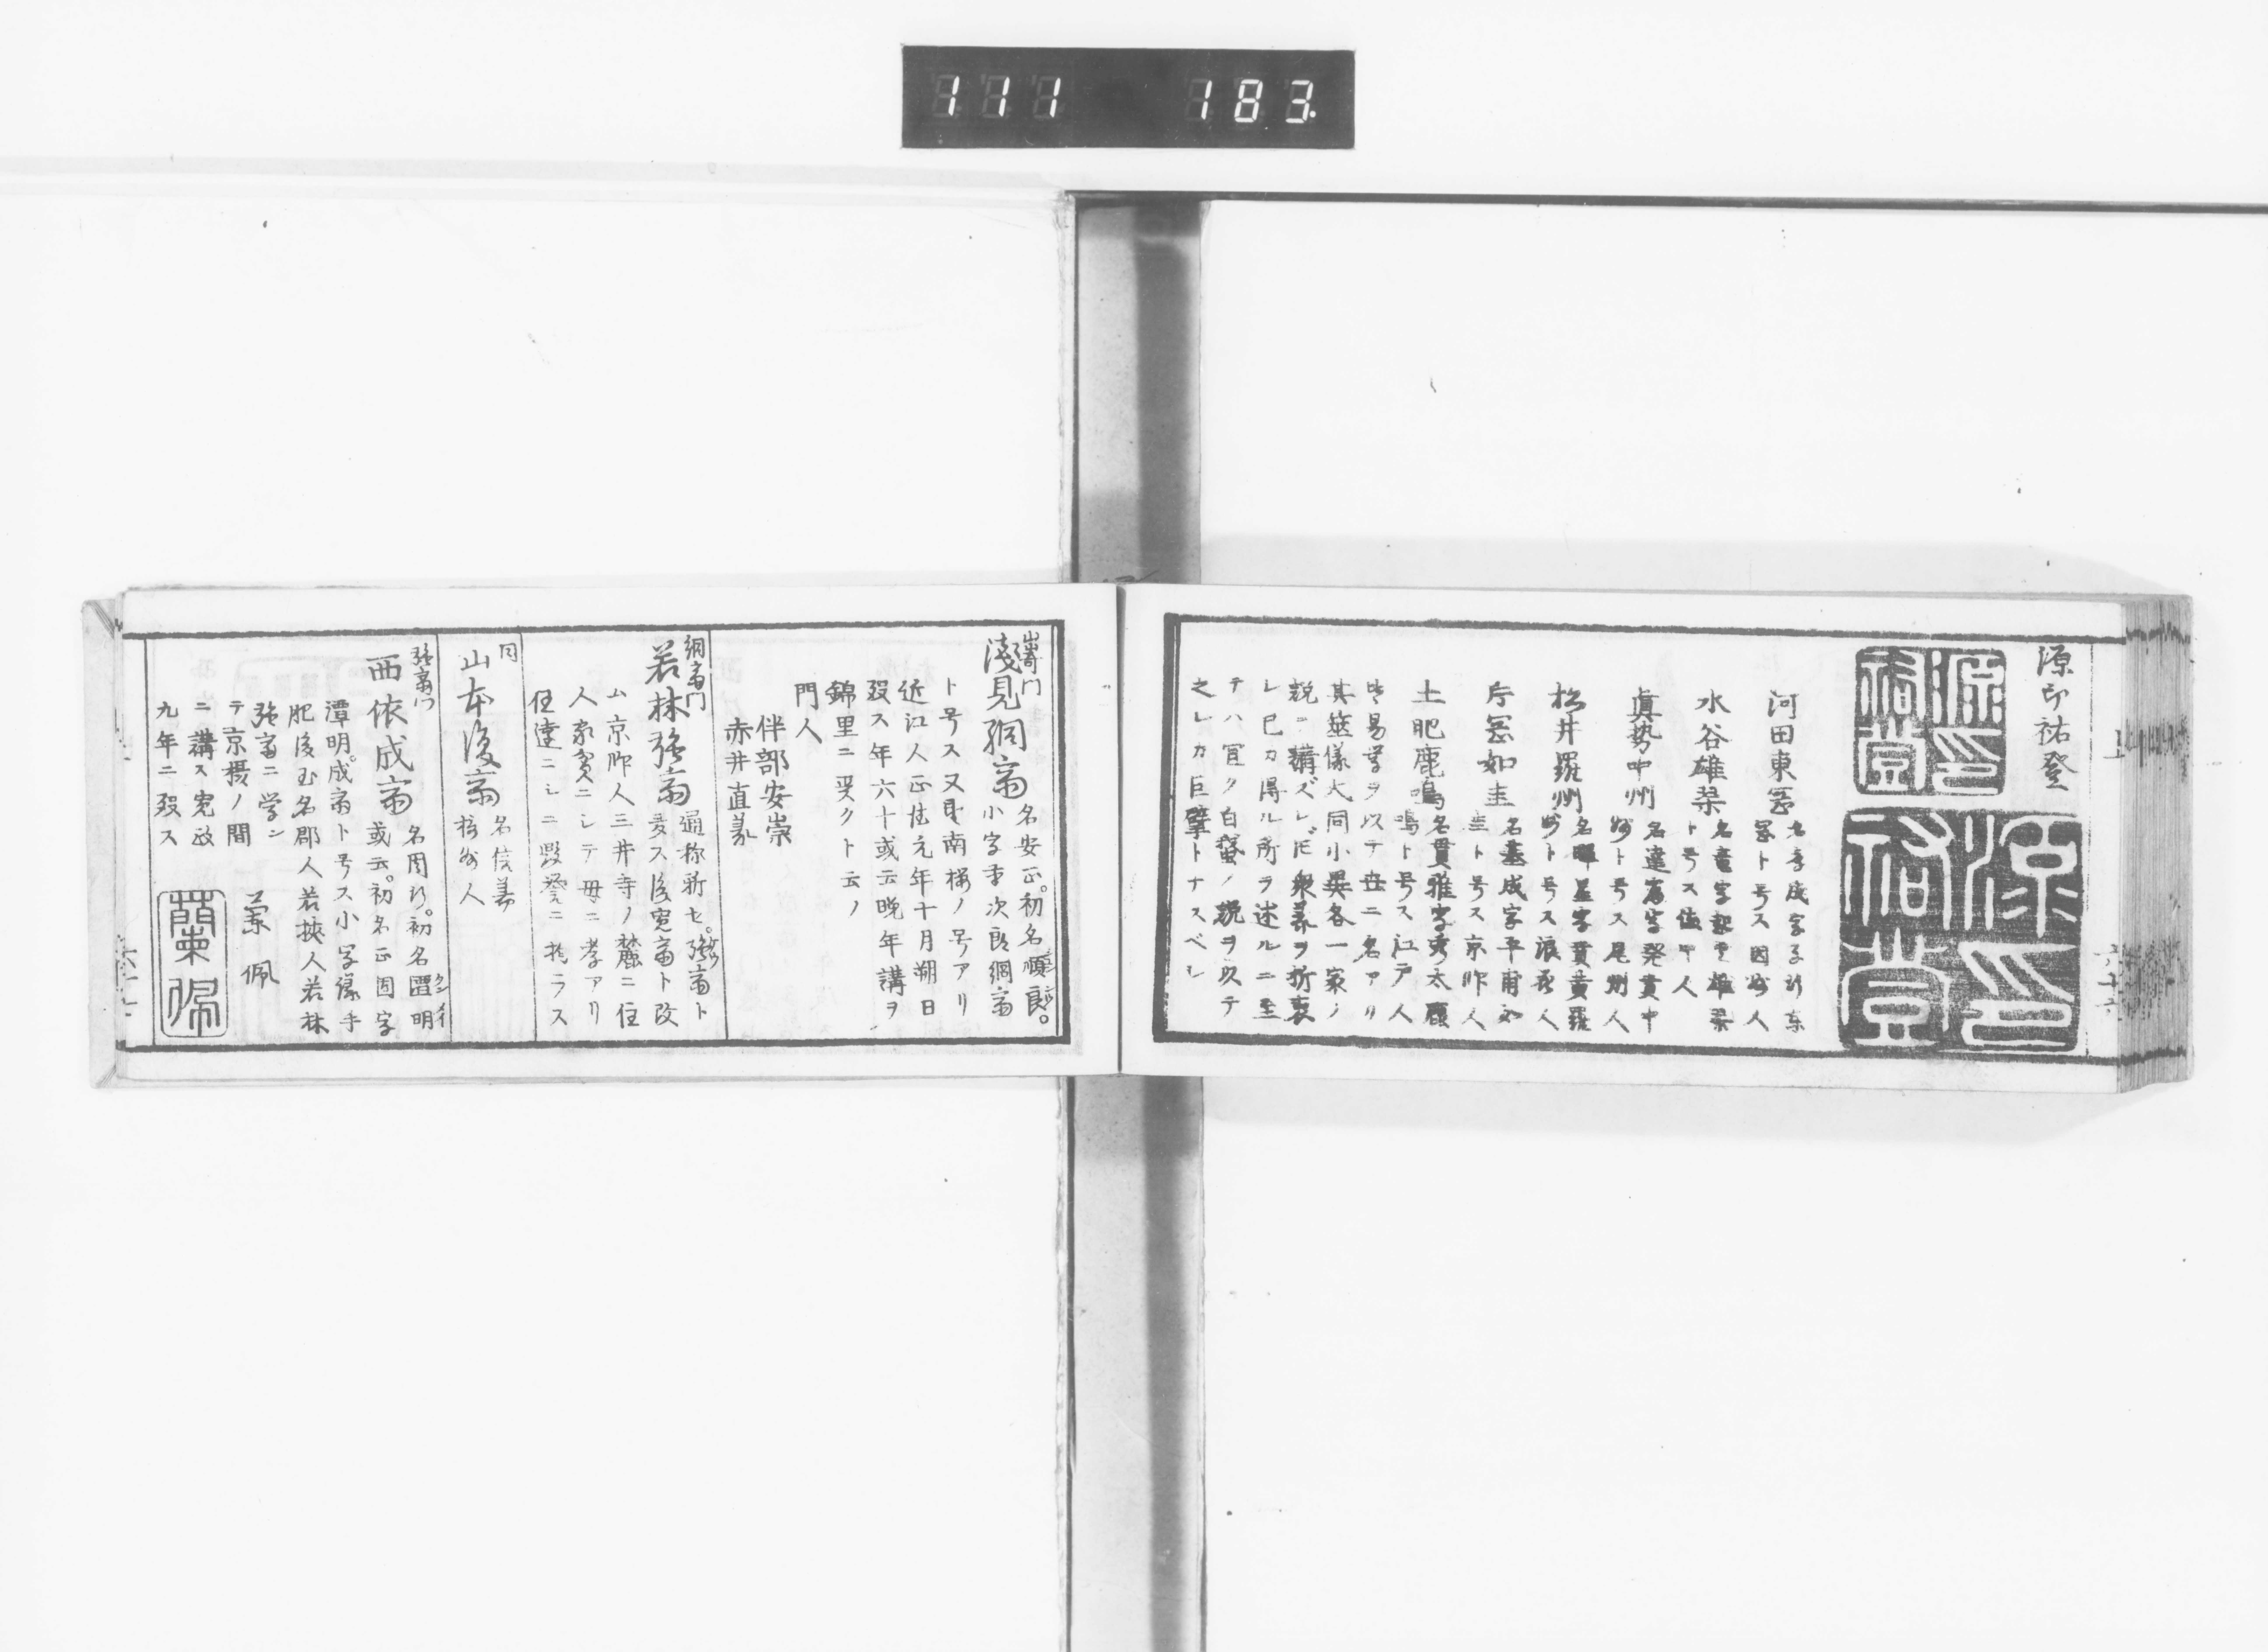 111 183
源印祐登
源印
祐堂
源印
祐堂
河田東岡
名孝成字子行東
岡ト号ス因州人
水谷雄琴
ト号ス備中人
眞勢中州
名達富字発貴中
州ト号ス尾州人
松井羅州
名暉星字賚黄羅
州ト号ス浪花人
片岡如圭
名基成字平甫如
圭ト号ス京師人
土肥鹿鳴
鳴ト号ス江戸人
皆易学ヲ以テ世ニ名アリ
其筮儀大同小異各一家ノ
説ニ講ズレドモ衆義ヲ折衷
レ已カ得ル所ヲ述ルニ至
テハ宜ク白蛾ノ説ヲ以テ
之レカ巨擘トナスベシ
上
山﨑門
淺見絅斎
名安正。初名順良。
小字重次郎絅斎
ト号ス又望南楼ノ号アリ
近江人正徳元年十月朔日
歿ス年六十或云晩年講ヲ
錦里ニ受クト云ノ
門人
伴部安崇
赤井直義
絅斎門
若林強斎
通称新七。強斎ト
麦ス後寛斎ト改
ム京師人三井寺ノ麓ニ住
人家貧ニシテ母ニ孝アリ
任達ニシニ毀誉ニ拘ラス
同
山本復斎
名信義
播州人
強斎門
西依成斎
名周行。初名置明
或云。初名正固字
潭明。成斎ト号ス小字儀平
肥後玉名郡人若狹人若林
強斎ニ学ン
テ京摂ノ間
ニ講ス寛政
九年ニ歿ス
蘭佩
蘭佩